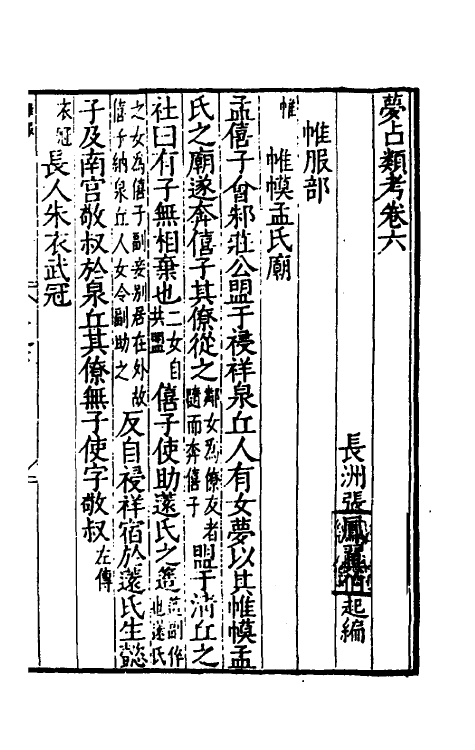 夢占類考卷六
長洲張鳳翼 起編
帷服部
帷
帷幙孟氏廟
孟僖子會邾莊公盟于祲祥泉丘人有女夢以其帷幙孟
氏之廟遂奔僖子其僚從之鄰女為僚友者隨而奔僖子盟于清丘之
社曰有子無相棄也二女自共盟僖子使助薳氏之簉簉副倅也薳氏
之女為僖子副妾別居在外故僖子納泉丘人女令副助之反自祲祥宿於薳氏生懿
子及南宮敬叔於泉丘其僚無子使字敬叔左傳
衣冠
長人朱衣武冠